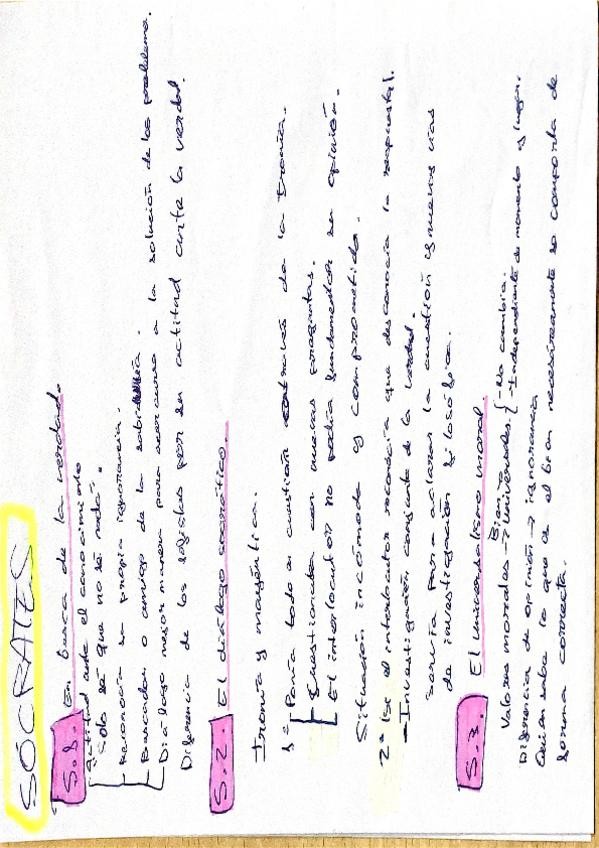 SÓCRATES
5.1. En busca de la verdad.
Actitud ante el conocimiento
"Solo sé que no sé nada".
Reconocía su propia ignorancia.
Buscador o amigo de la sabiduría.
Diálogo mejor manera para acercarse a la solución de los problemas.
Diferencia de los sofistas por su actitud ante la verdad.
5.2. El diálogo socrático.
Ironía y mayéutica.
1º Ponía todo a cuestión a través de la Ironía.
Cuestionaba con nuevas preguntas.
El interlocutor no podía fundamentar su opinión.
Situación incómoda y comprometida.
2º el interlocutor reconocía que desconocía la respuesta.
- Investigación conjunta de la verdad.
Servía para aclarar la cuestión y nuevas vías
de investigación filosófica.
5.3. El universalismo moral
Bien
Valores morales → universales. - No cambia.
- Independiente de momento y lugar.
Diferencia de opinión → ignorancia
Quien sabe lo que es el bien necesariamente se comporta de
forma correcta.